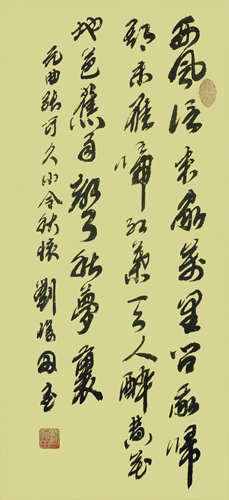 西風信來家萬里問我歸
期未雁啼紅葉天人醉黃花
地芭蕉雨聲秋夢裏
元曲張可久小令秋懷 劉